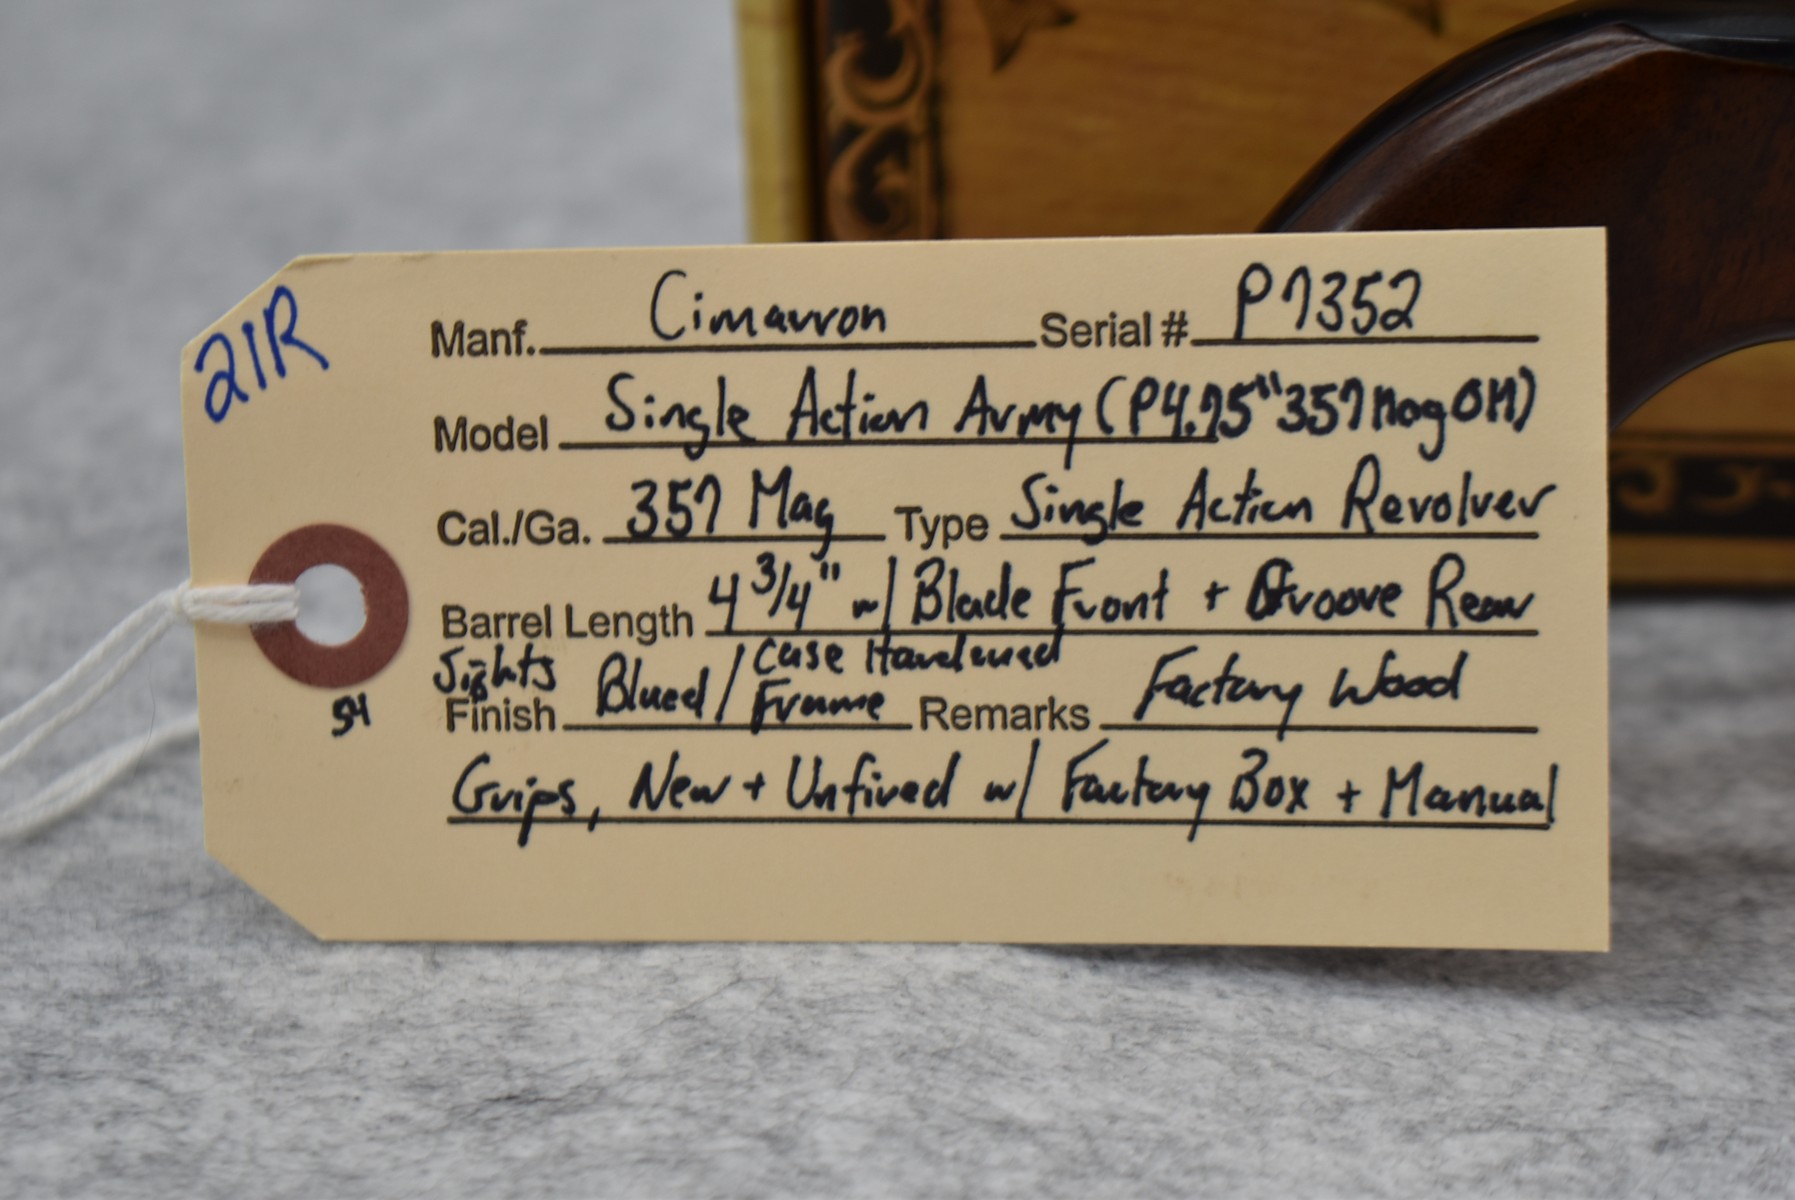 21R
Manf. Cimarron Serial # P7352
Model Single Action Army (P4.75" 357 Mag OM)
Cal./Ga. 357 Mag Type Single Action Revolver
Barrel Length 4 3/4" w/ Blade Front + Groove Rear
Sights
Finish Blued / Case Hardened Frame Remarks Factory Wood
54
Grips, New + Unfired w/ Factory Box + Manual